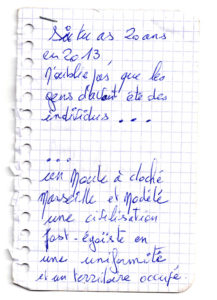 Si tu as 20 ans
en 2013,
N'oublie pas, que les
gens d'avant été des
individus ...
...
un Monde a cloché
Marseille et Modélé
une civilisation
fast-égoïste en
une uniformité
et un territoire occupé.